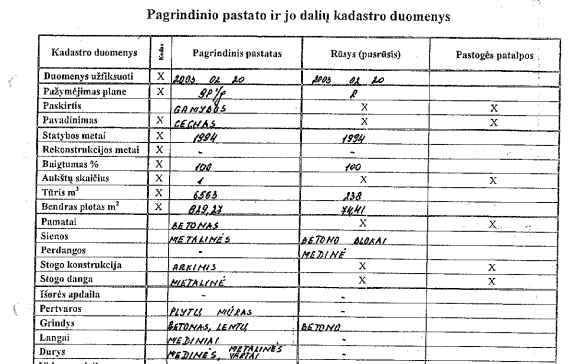 Pagrindinio pastato ir jo dalių kadastro duomenys
Kadastro duomenys Kodas Pagrindinis pastatas Rūsys (pusrūsis) Pastogės patalpos
Duomenys užfiksuoti X 2003 02 20 2003 02 20
Pažymėjimas plane X
Paskirtis GAMYBOS X X
Pavadinimas X CECHAS X X
Statybos metai X 1994 1994
Rekonstrukcijos metai X - -
Baigtumas % X 100 100
Aukštų skaičius X 1 X X
Tūris m³ X 6563 238
Bendras plotas m² X 829,27 74,41
Pamatai BETONAS X X
Sienos METALINĖS BETONO BLOKAI
Perdangos - MEDINĖ
Stogo konstrukcija ARKINIS X X
Stogo danga METALINĖ X X
Išorės apdaila - -
Pertvaros PLYTŲ MŪRAS -
Grindys BETONAS, LENTŲ BETONO
Langai MEDINIAI -
Durys MEDINĖS, METALINĖS VARTAI -